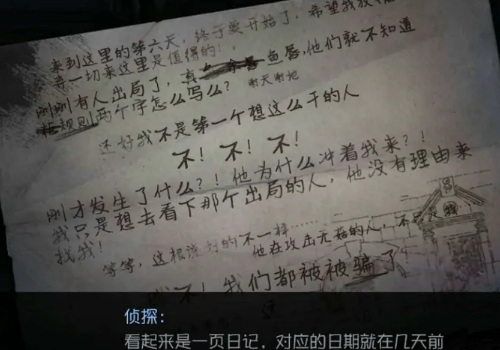 来到这里的第六天，终于要开始了，希望我放
弃一切来这里是值得的！
刚刚有人出局了，真 鱼唇，他们就不知道
规则两个字怎么写么？ 谢天谢地
还好我不是第一个想这么干的人
不！不！不！
刚才发生了什么？！他为什么冲着我来？！
我只是想去看下那个出局的人，他没有理由来
找我！
等等，这和说好的不一样
他在攻击无辜的人，不只是我
不！我们都被被骗了
侦探：
看起来是一页日记，对应的日期就在几天前